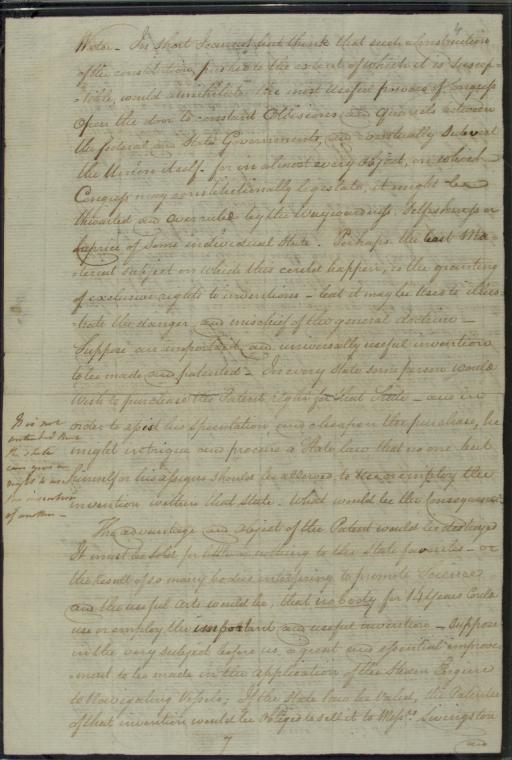 4
Water – In short I cannot but think that such a Construction
of the constitution, pushed to the extent of which it is suscep-
-tible, would annihilate the most useful powers of Congress
open the door to constant Collisions, and quarrels between
the federal and State Governments, and eventually subvert
the Union itself. for in almost every object, on which
Congress may constitutionally legislate, it might be
thwarted and overruled by the waywardness, selfishness or
caprice of some individual State. Perhaps the least Ma-
-terial subject on which this could happen, is the granting
of exclusive rights to inventions – but it may be used to illus-
-trate the danger and mischief of the general doctrine –
Suppose an important and universally useful invention
to be made and patented – In every state some person would
wish to purchase the Patent right for that State – and in
order to his speculation and cheapen the purchase, he
might intrigue and procure a State law that no one but
himself or his assigns should be allowed to use or employ the
invention within that State. What would be the Consequence
It is not
contended that
the state
can give a
right to use
the invention
of another –
The advantage and object of the Patent would be destroyed
It must be sold for little or nothing to the State favorites – or
the result of so many bodies interfering to promote Science
and the useful Arts would be, that nobody for 14 Years Could
use or employ the important and useful invention – Suppose
in the very subject before us, a great and essential improve-
-ment to be made in the application of the Steam Engine
to Navigating Vessels; If the State law be valid, the Patentee
of that invention would be obliged to sell it to Messrs Livingston
and
7